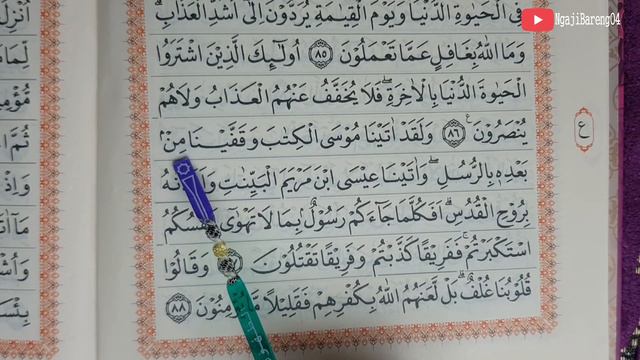 NgajiBareng04
فِى الْحَيٰوةِ الدُّنْيَا وَيَوْمَ الْقِيٰمَةِ يُرَدُّوْنَ اِلٰٓى اَشَدِّ الْعَذَابِ
وَمَا اللّٰهُ بِغَافِلٍ عَمَّا تَعْمَلُوْنَ ﴿٨٥﴾ اُولٰۤىِٕكَ الَّذِيْنَ اشْتَرَوُا
الْحَيٰوةَ الدُّنْيَا بِالْاٰخِرَةِ ۖ فَلَا يُخَفَّفُ عَنْهُمُ الْعَذَابُ وَلَا هُمْ
يُنْصَرُوْنَ ࣖ ﴿٨٦﴾ وَلَقَدْ اٰتَيْنَا مُوْسَى الْكِتٰبَ وَقَفَّيْنَا مِنْۢ
ع
بَعْدِهٖ بِالرُّسُلِ ۖ وَاٰتَيْنَا عِيْسَى ابْنَ مَرْيَمَ الْبَيِّنٰتِ
بِرُوْحِ الْقُدُسِ ۗ اَفَكُلَّمَا جَاۤءَكُمْ رَسُوْلٌۢ بِمَا لَا تَهْوٰىٓ
اسْتَكْبَرْتُمْ ۚ فَفَرِيْقًا كَذَّبْتُمْ وَفَرِيْقًا تَقْتُلُوْنَ وَقَالُوْا
قُلُوْبُنَا غُلْفٌ ۗ بَلْ لَّعَنَهُمُ اللّٰهُ بِكُفْرِهِمْ فَقَلِيْلًا ﴿٨٨﴾